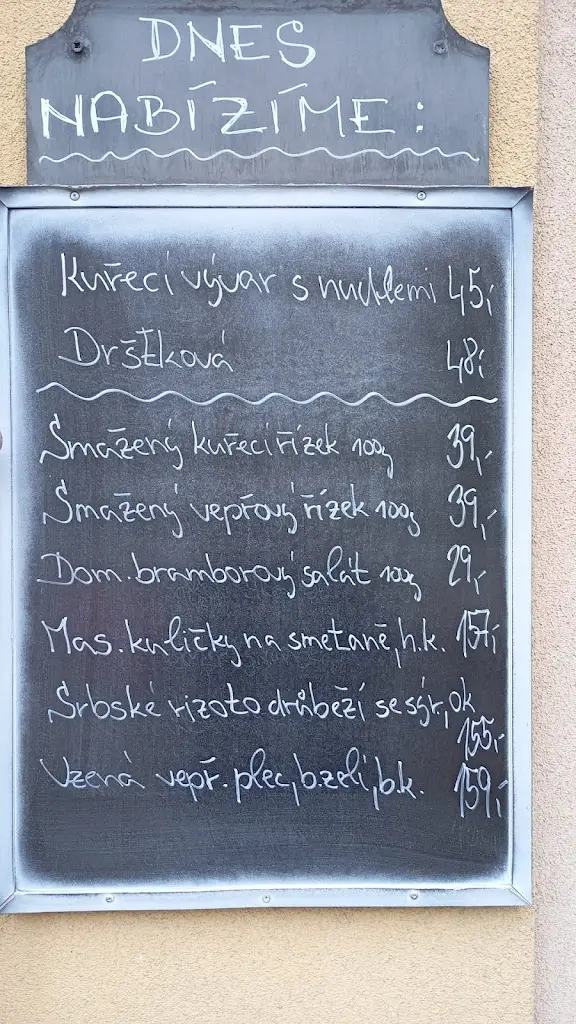 DNES
NABÍZÍME:
Kuřecí vývar s nudlemi 45,-
Drštková 48,-
Smažený kuřecí řízek 100g 39,-
Smažený vepřový řízek 100g 39,-
Dom. bramborový salát 100g 29,-
Mas. kuličky na smetaně, h.k. 157,-
Srbské rizoto drůbeží se sýr, ok
155,-
Uzená vepř. plec, b.zelí, b.k. 159,-